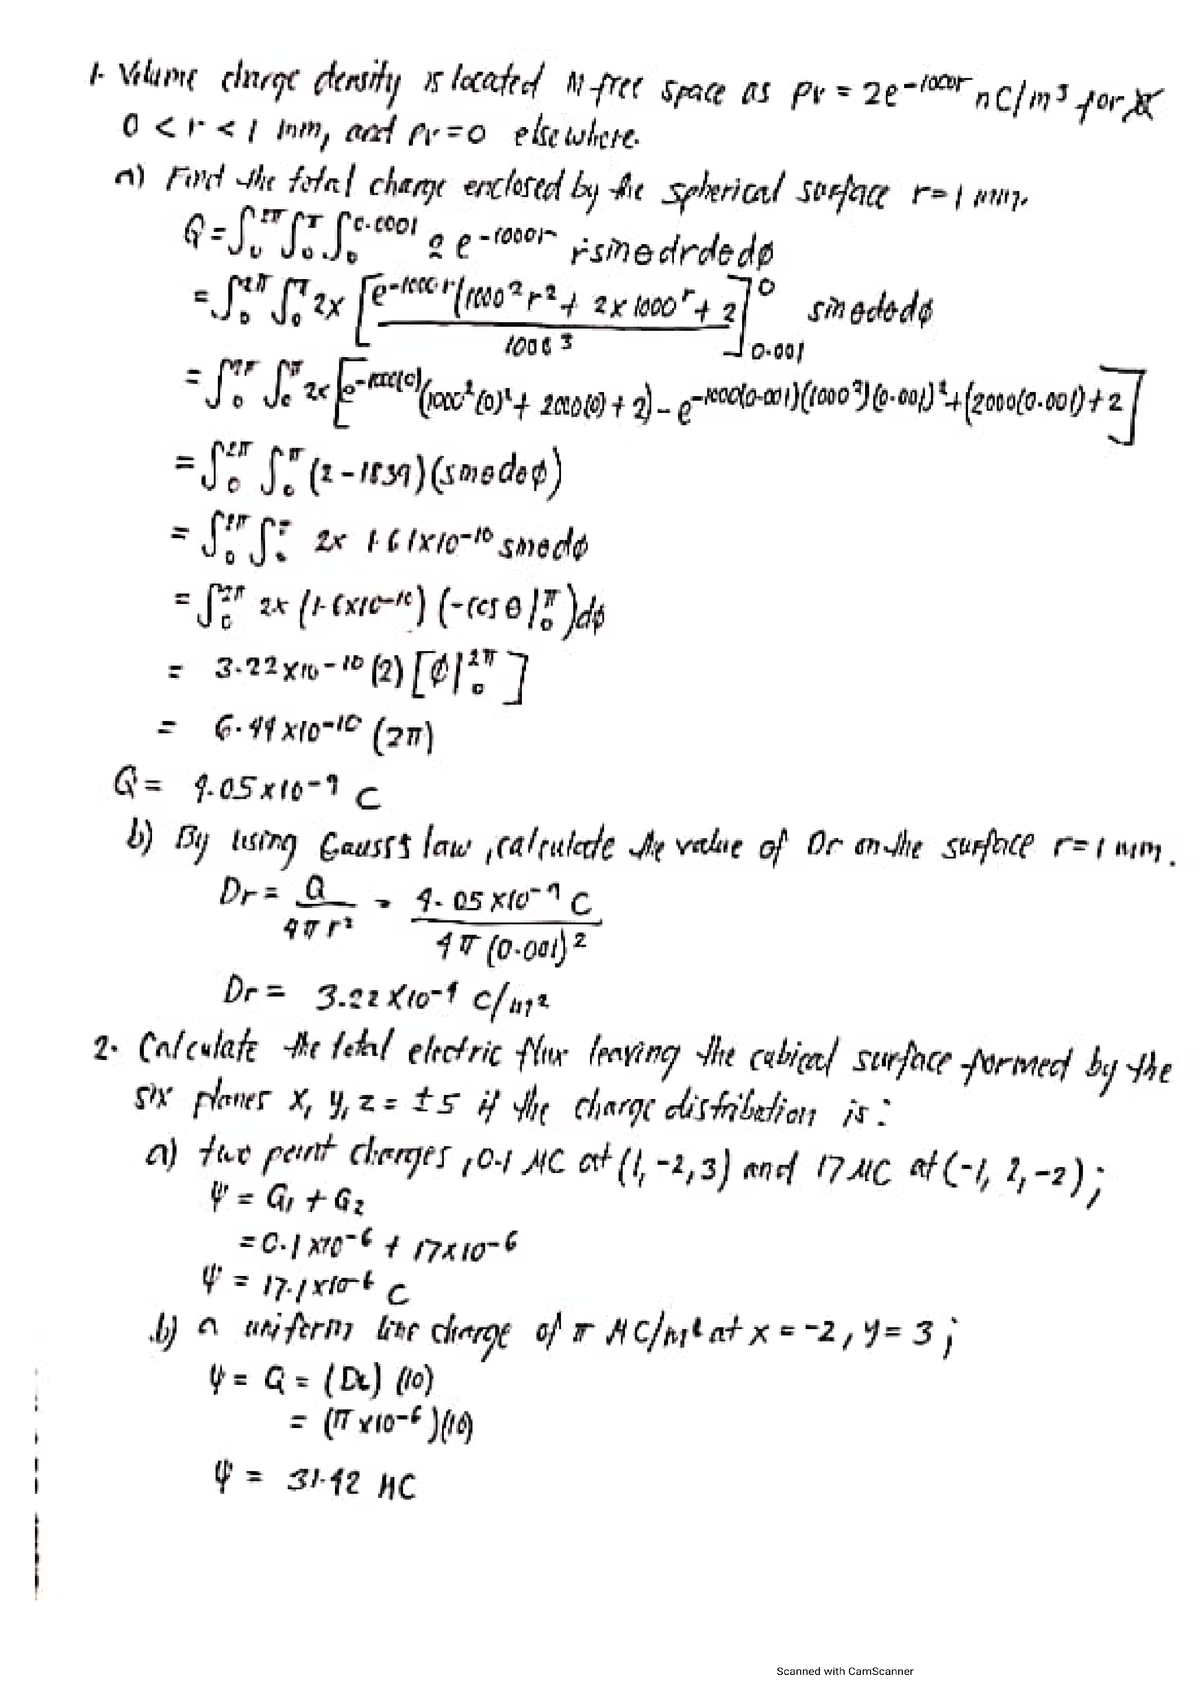 1. Volume charge density is located in free space as ρv = 2e^-1000r nC/m³ for
0 < r < 1 mm, and ρv = 0 elsewhere.
a) Find the total charge enclosed by the spherical surface r = 1 mm.
Q = ∫₀^2π ∫₀^π ∫₀^0.0001 2 e^-1000r r sinθ dr dθ dφ
= ∫₀^2π ∫₀^π 2x [e^-1000r (1000² r² + 2x1000r + 2) / 1000³]₀.₀₀₁^0 sinθ dθ dφ
= ∫₀^2π ∫₀^π 2x [e^-1000(0) (1000²(0)² + 2000(0) + 2) - e^-1000(0.001) (1000²)(0.001)² + (2000(0.001) + 2]
= ∫₀^2π ∫₀^π (2 - 1.839)(sinθ dθ φ)
= ∫₀^2π ∫₀^π 2x 1.61x10^-10 sinθ dφ
= ∫₀^2π 2x (1.6x10^-10) (-cosθ |₀^π) dφ
= 3.22x10^-10 (2) [φ|₀^2π]
= 6.44x10^-10 (2π)
Q = 4.05x10^-9 C
b) By using Gauss's law, calculate the value of Dr on the surface r = 1 mm.
Dr = Q / 4πr² = 4.05x10^-9 C / 4π (0.001)²
Dr = 3.22x10^-4 C/m²
2. Calculate the total electric flux leaving the cubical surface formed by the
six planes x, y, z = ±5 if the charge distribution is:
a) two point charges, 0.1 μC at (1, -2, 3) and 17 μC at (-1, 2, -2);
Ψ = Q₁ + Q₂
= 0.1x10^-6 + 17x10^-6
Ψ = 17.1x10^-6 C
b) a uniform line charge of π μC/m at x = -2, y = 3;
Ψ = Q = (DL) (10)
= (π x10^-6)(10)
Ψ = 31.42 μC
Scanned with CamScanner